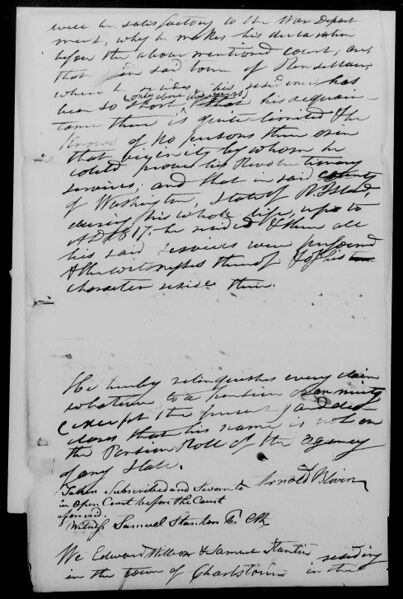 were be satisfactory to the War Depart
ment, why he makes his declaration
before the above mentioned court; and
that in said town of
where he resides, his residence has
been so short, (only about six years) that his acquain-
tance there is quite limited & he
knows of no persons then even
that vicinity by whom he
could prove his Revolutionary
services; and that in said county
of Washington, State of R. Island,
during his whole life, up to
AD 1817, he resided & there all
his said services were performed
& the witnesses thereof & of his
character reside there.
He hereby relinquishes every claim
whatever to a pension or annuity
(except the present) and de-
clares that his name is not on
the Pension Roll of the agency
of any State.
Taken Subscribed and Sworn to Arnold Bliven
in Open Court before the Court
aforesaid
Witness Samuel Stanton Clk
We Edward Wilcox & Samuel Stanton residing
in the town of Charlstown in the